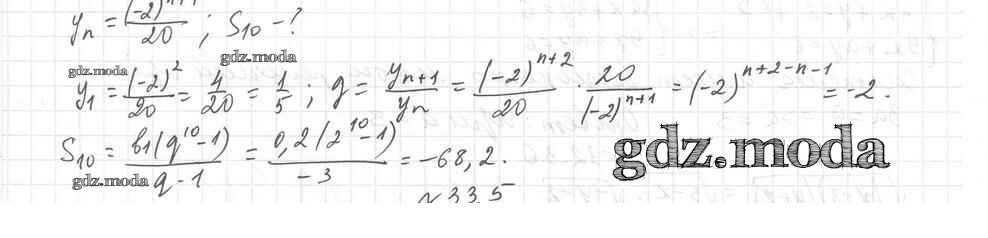 yₙ = (-2)ⁿ⁺¹/20 ; S₁₀ - ?
gdz.moda
gdz.moda
y₁ = (-2)²/20 = 4/20 = 1/5 ; g = yₙ₊₁/yₙ = (-2)ⁿ⁺²/20 · 20/(-2)ⁿ⁺¹ = (-2)ⁿ⁺²⁻ⁿ⁻¹ = -2.
S₁₀ = b₁(q¹⁰-1)/q-1 = 0,2(2¹⁰-1)/-3 = -68,2.
gdz.moda
gdz.moda
N335